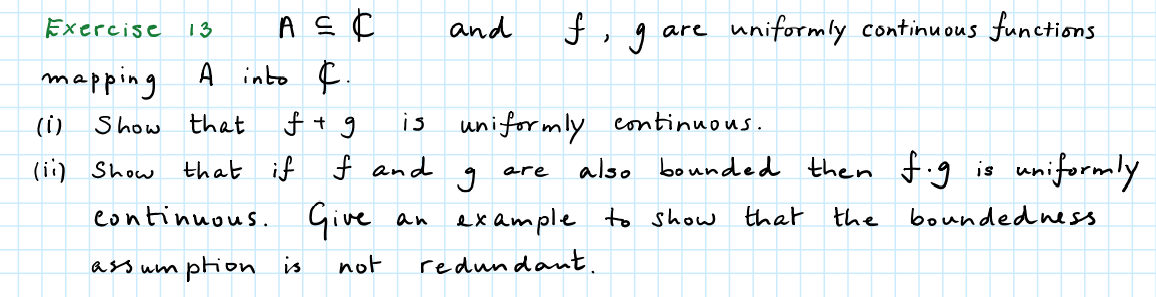 Exercise 13 A ⊆ ℂ and f, g are uniformly continuous functions
mapping A into ℂ.
(i) Show that f + g is uniformly continuous.
(ii) Show that if f and g are also bounded then f·g is uniformly
continuous. Give an example to show that the boundedness
assumption is not redundant.